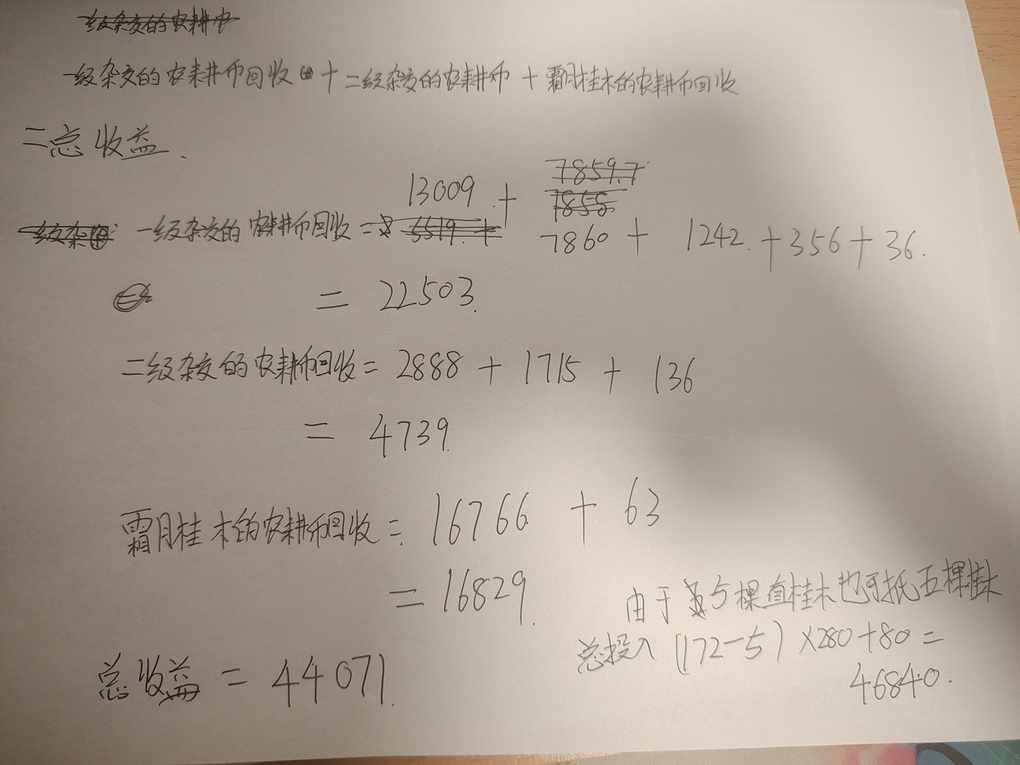 一级杂交的农耕币回收 + 二级杂交的农耕币 + 霜月桂木的农耕币回收
二总收益.
7859.7
7858
一级杂交的农耕币回收 = 13009 + 7860 + 1242 + 356 + 36.
5519. +
= 22503.
二级杂交的农耕币回收 = 2888 + 1715 + 136
= 4739.
霜月桂木的农耕币回收 = 16766 + 63
= 16829.
由于5棵直桂木也可抵五棵桂木
总投入 (172-5)×280+80=
46840.
总收益 = 44071.